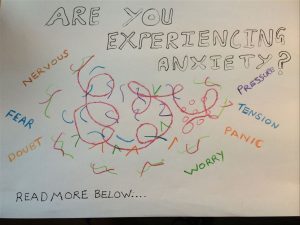 ARE YOU
EXPERIENCING
ANXIETY?
NERVOUS
PRESSURE
FEAR
TENSION
DOUBT
PANIC
WORRY
READ MORE BELOW....